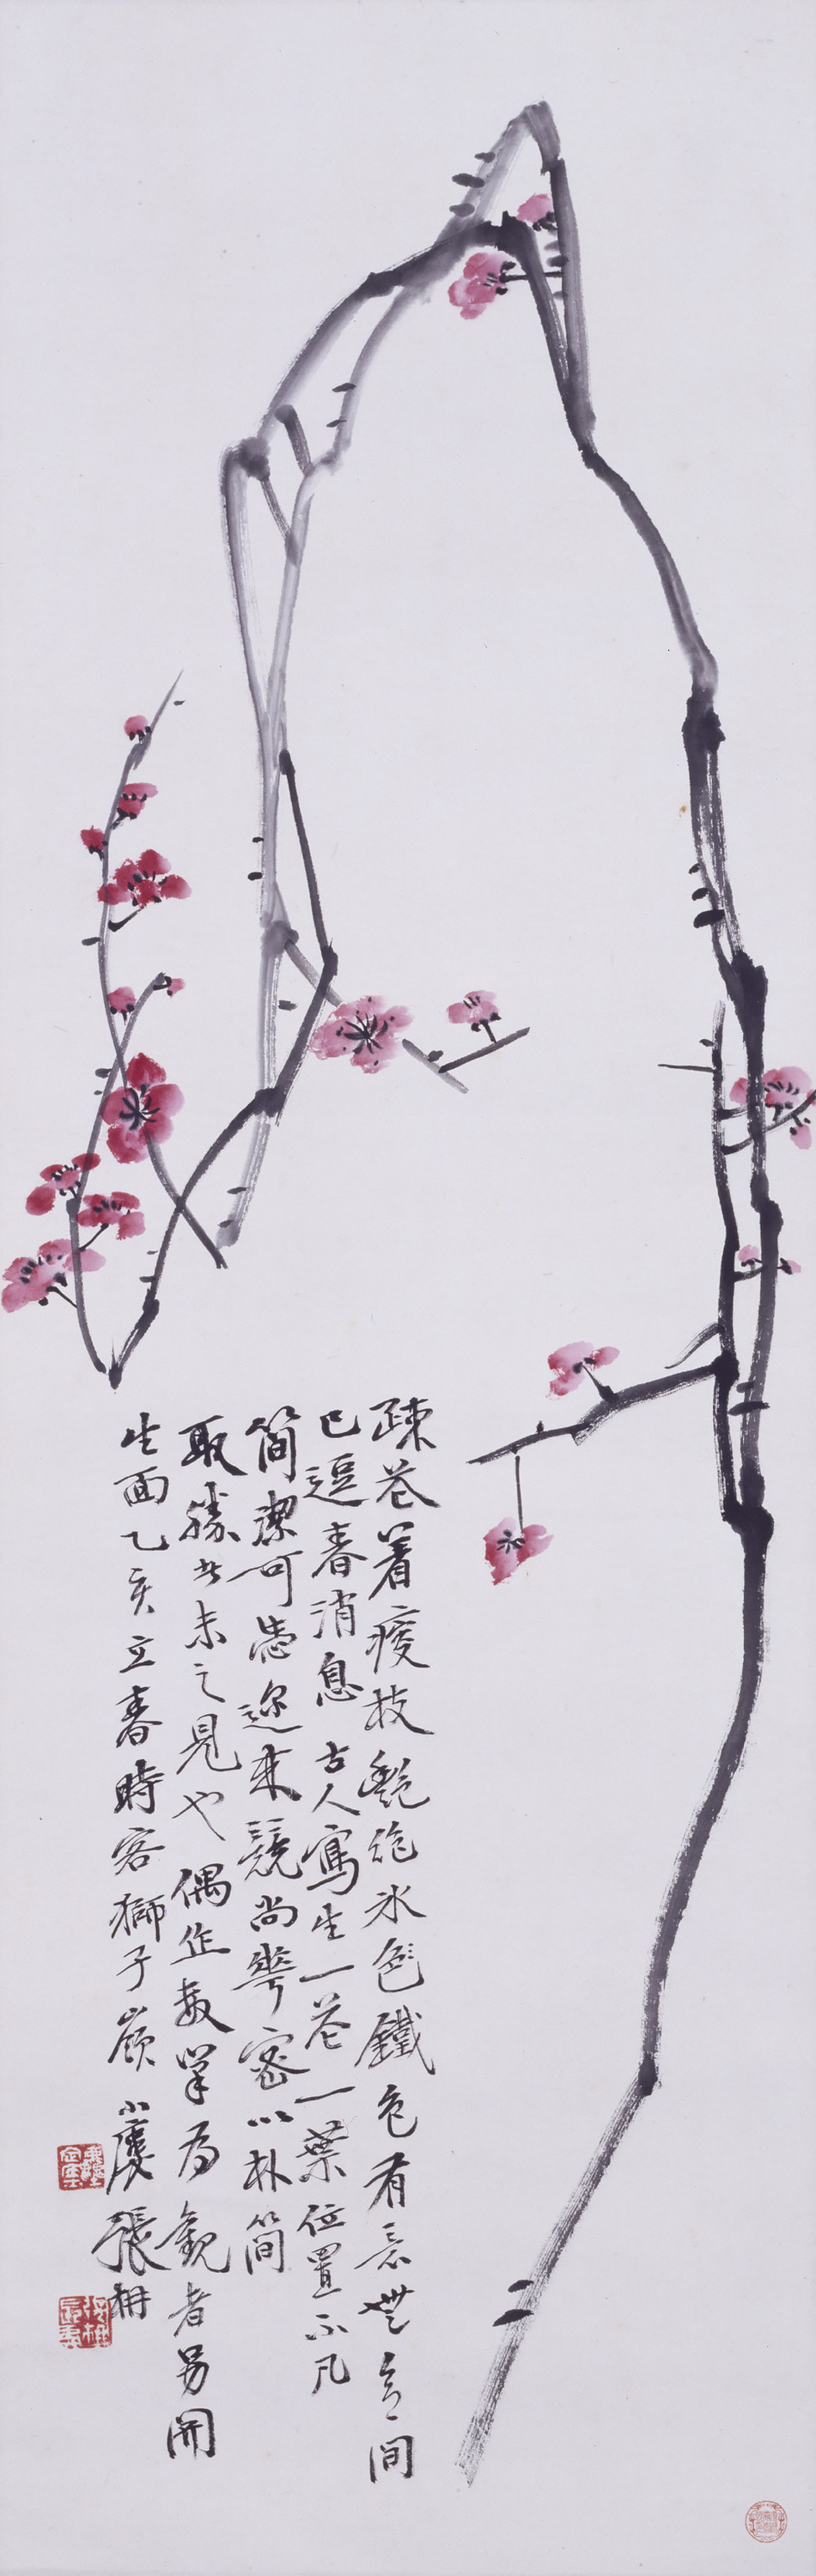 疎花着瘦枝艷絶冰色鐵色有意無意間
已逗春消息古人寫生一花一葉位置不凡
簡潔可喜邇來競尚華密以朴簡
取勝者未之見也偶作數筆為觀者另開
生面乙亥立春時客獅子嶺小廔張枏